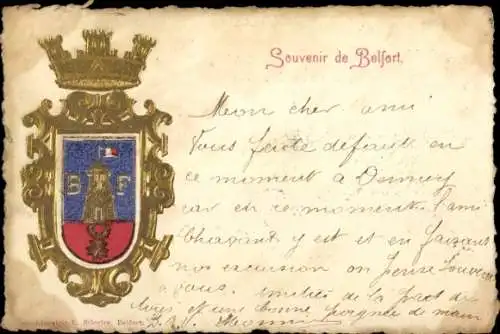 Souvenir de Belfort.
B F
Mon cher ami
Vous faite défaut en
ce moment a
car en ce moment l'ami
y est et en faisant
nos excursion on pense souvent
a vous. Amitiés de la part de
tous et une bonne poignée de main